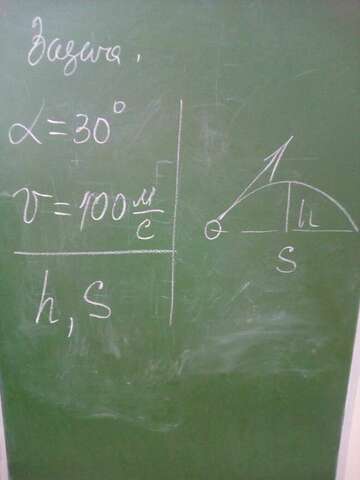 Задача.
α = 30°
v = 100 м/с
h, S
h
S